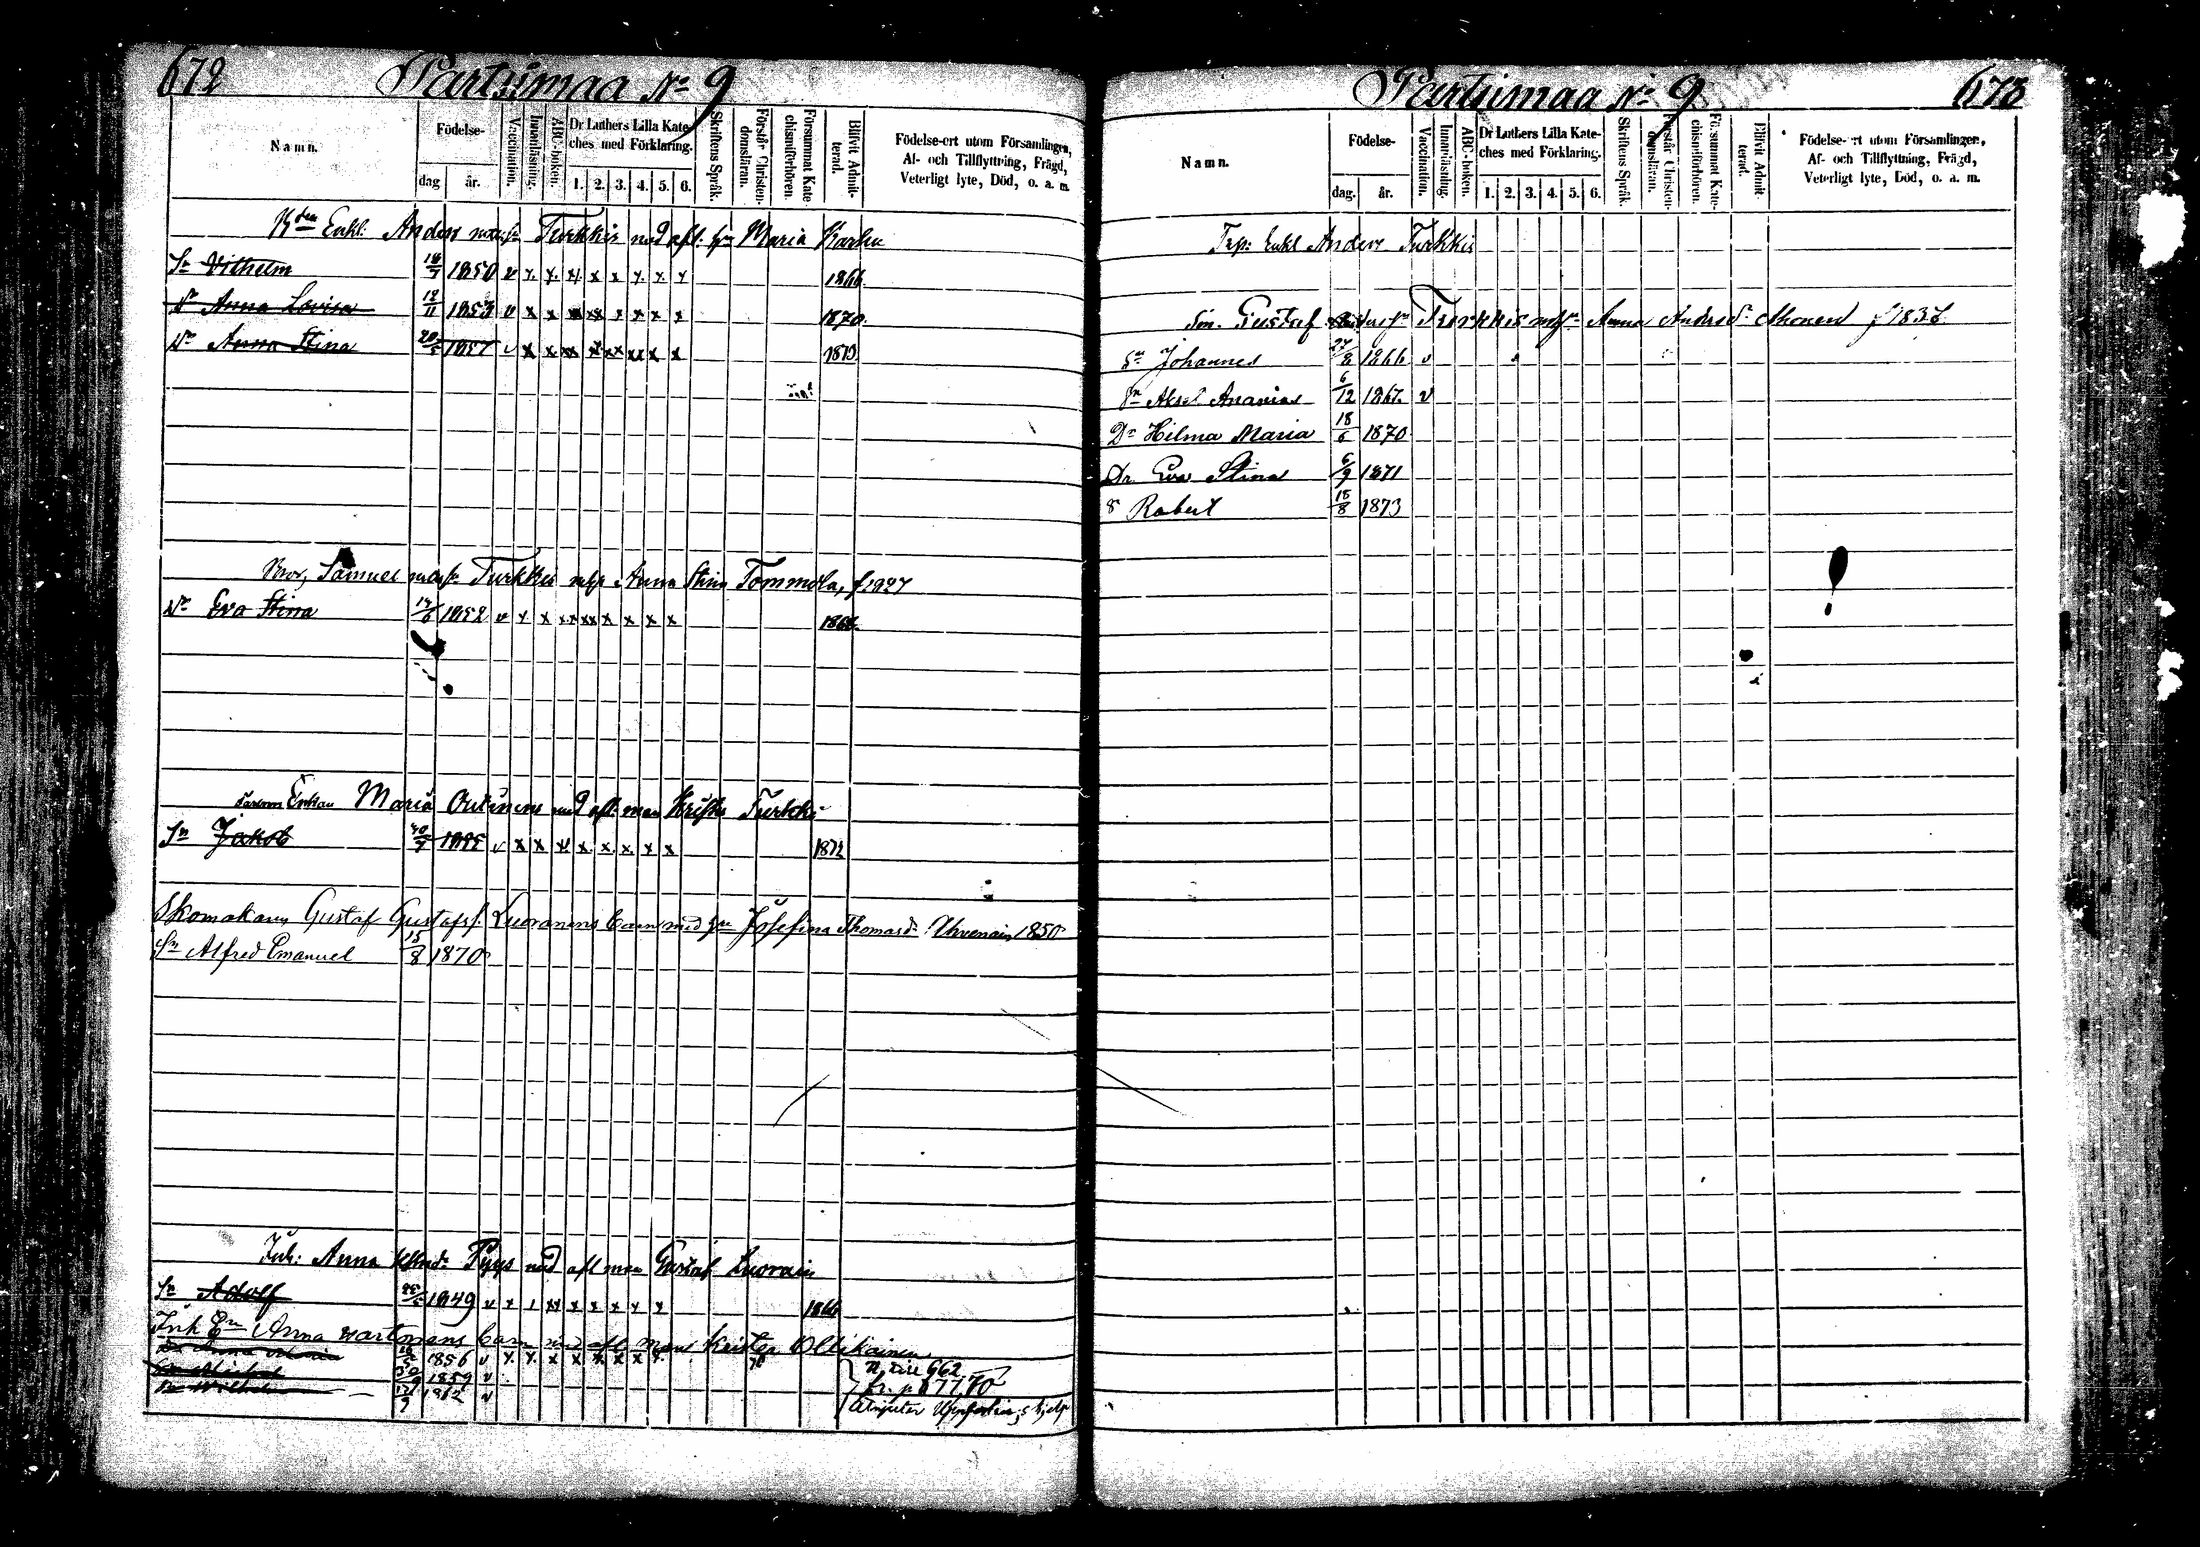 672 Partsimaa No 9
Namn.
Födelse-
dag
år.
Vaccination.
Innanläsning.
ABC-boken.
Dr Luthers Lilla Kate-
ches med Förklaring.
1. 2. 3. 4. 5. 6.
Skriftens Språk.
Förstår Christen-
domsläran.
Försummat Kate-
chismiförhören.
Blifvit Admit-
terad.
Födelse-ort utom Församlingen,
Af- och Tillflyttning, Frägd,
Veterligt lyte, Död, o. a. m.
Enkl. Anders Turkkis med afl. Maria Karhu
Sn Vilhelm 1850 v x x x x x x x x 1866
Dr Anna Lovisa 12/11 1853 v x x x xx x x x x 1870.
Dr Anna Stina 20/5 1857 v x x xx x xx xx x x 1873
Samuel Turkkis Anna Stina Tommola, f 1827
Dr Eva Stina 1852 v x x xx xx x x x x 1868
Enkan Maria Outinens med afl. man Krister Turkki
Sn Jakob v x x x x x x x x 1872
Skomakaren Gustaf Gustafss. Luoranens barn med Josefina Thomasdr Uhvenain 1850
Sn Alfred Emanuel 15/8 1870
Inh: Anna Pyys med afl man Gustaf Luorain
Sn Adolf 1849 v x x x x x x x 1866
Inh Anna Martinens barn med afl. man Krister Ollikainen
1856 v x x x x x x x x
1859 v
Wilhelm 1862 v
662
677. 70
673 Partsimaa No 9
Namn.
Födelse-
dag.
år.
Vaccination.
Innanläsning.
ABC-boken.
Dr Luthers Lilla Kate-
ches med Förklaring.
1. 2. 3. 4. 5. 6.
Skriftens Språk.
Förstår Christen-
domsläran.
Försummat Kate-
chismiförhören.
Blifvit Admit-
terad.
Födelse-ort utom Församlingen,
Af- och Tillflyttning, Frägd,
Veterligt lyte, Död, o. a. m.
Enkl Anders Turkkis
Son. Gustaf Turkkis Anna Andersdr Ahonen f 1836
Sn Johannes 27/8 1866 v
Sn Aksel Ananias 6/12 1867. v
Dr Hilma Maria 18/6 1870
Dr. Eva Stina 6/9 1871
S Robert 18/8 1873